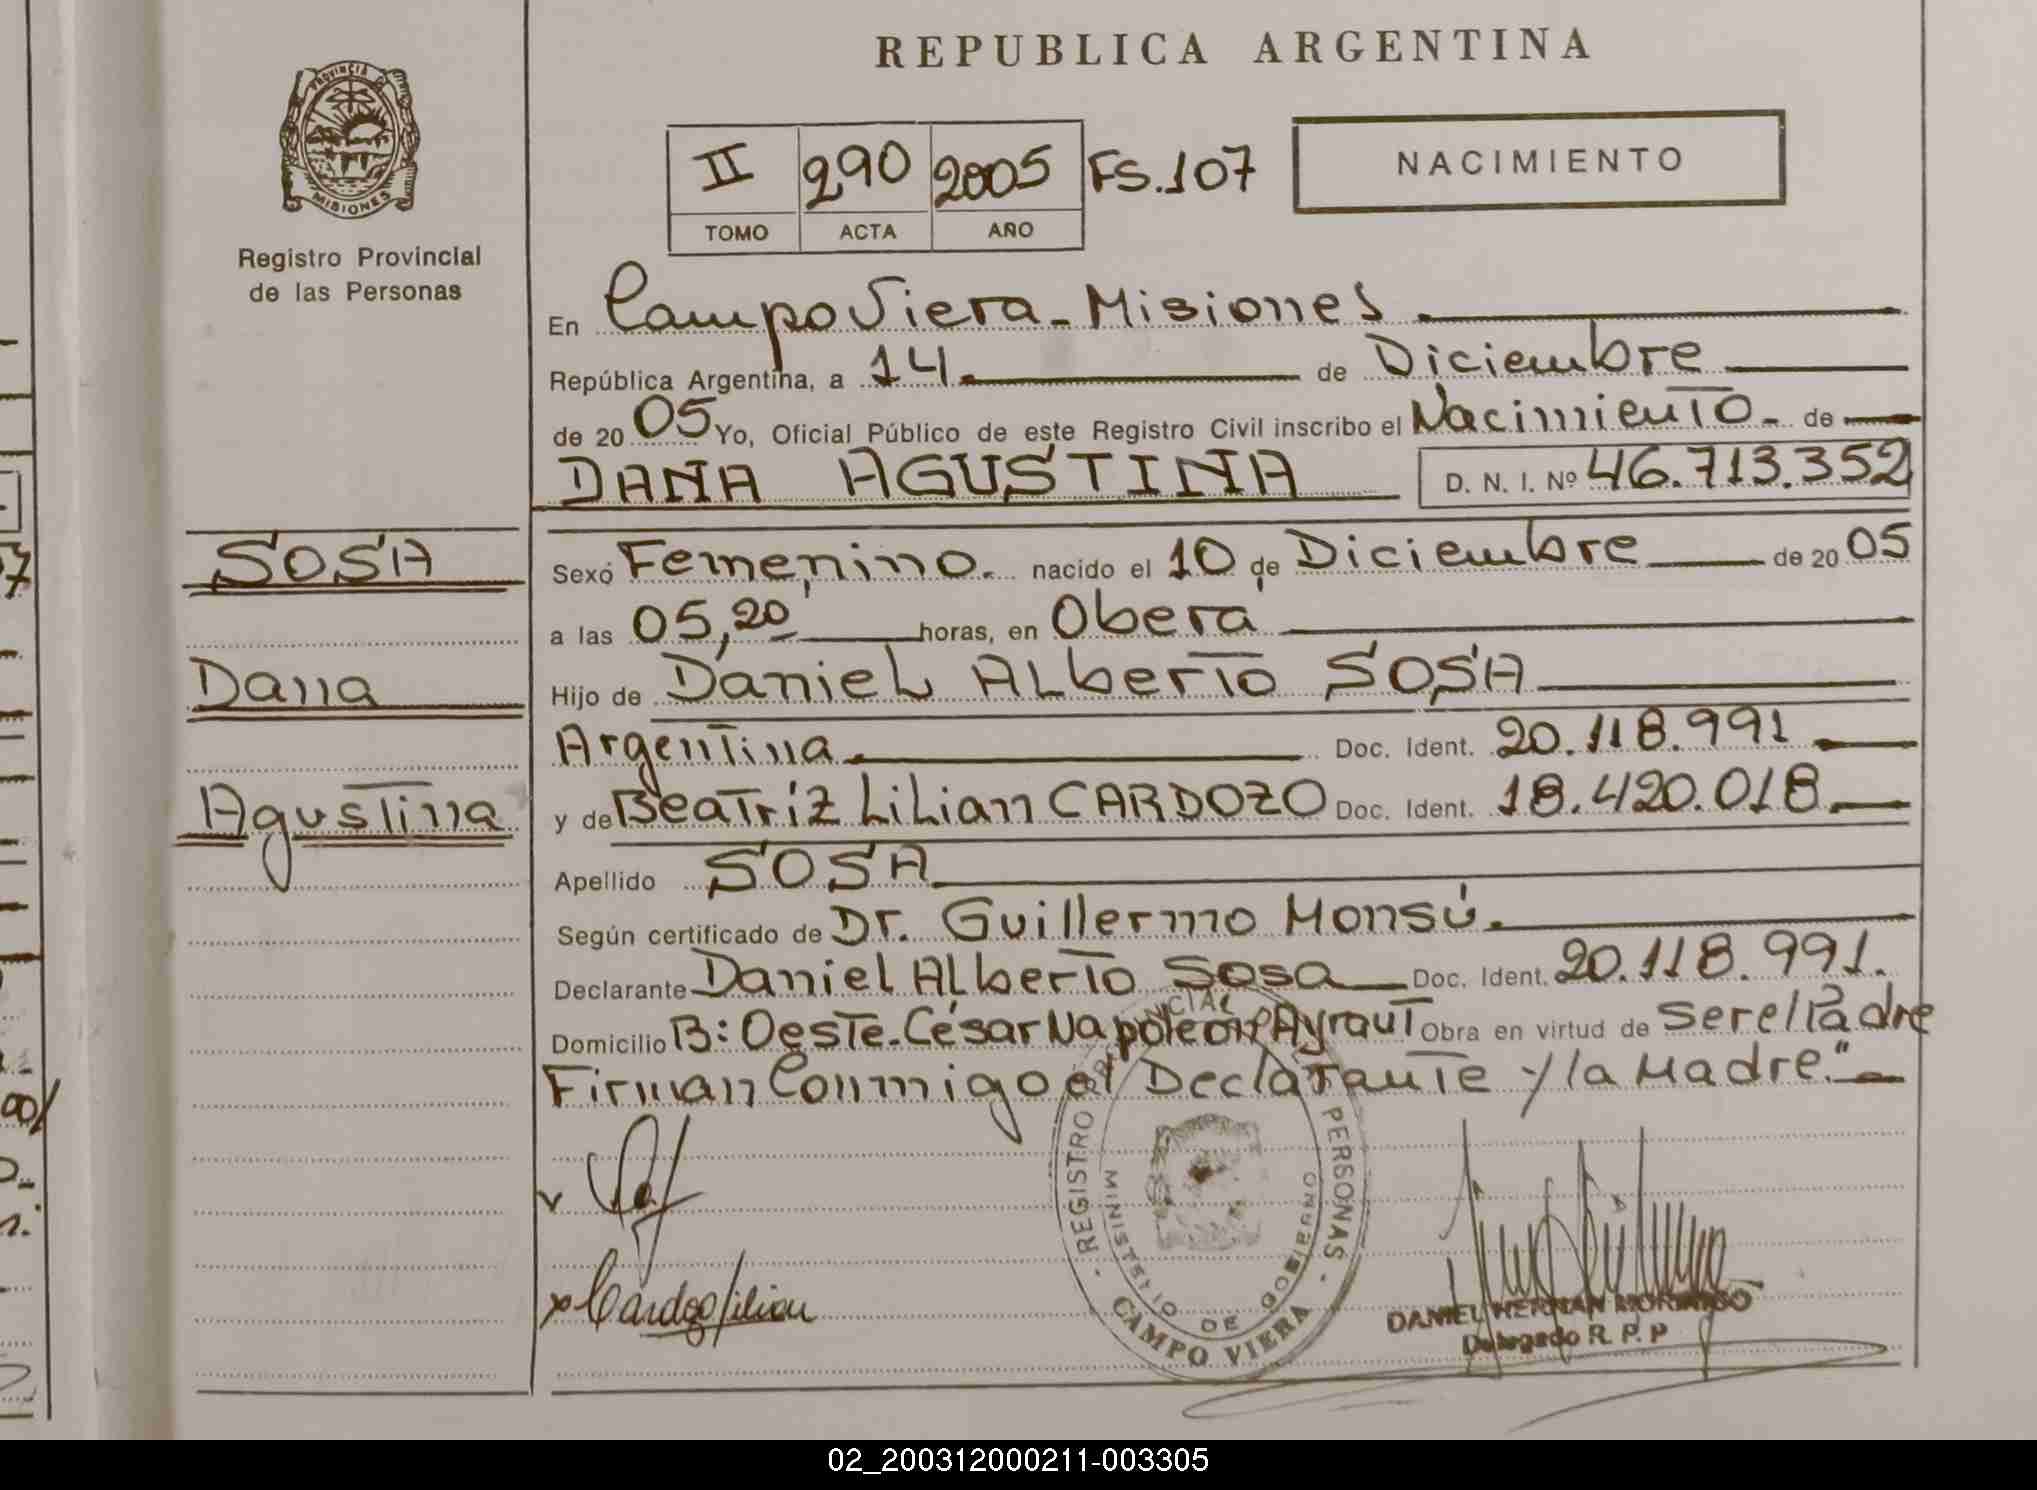 REPUBLICA ARGENTINA
PROVINCIA DE
MISIONES
Registro Provincial
de las Personas
II 290 2005 FS.107
TOMO ACTA AÑO
NACIMIENTO
En Campo Viera - Misiones
República Argentina, a 14 de Diciembre
de 20 05 Yo, Oficial Público de este Registro Civil inscribo el Nacimiento - de
DANA AGUSTINA D. N. I. Nº 46.713.352
SOSA
Dana
Agustina
Sexo Femenino. nacido el 10 de Diciembre de 20 05
a las 05,20 horas, en Obera
Hijo de Daniel Alberto SOSA
Argentina Doc. Ident. 20.118.991
y de Beatríz Lilian CARDOZO Doc. Ident. 18.420.018
Apellido SOSA
Según certificado de Dr. Guillermo Monsú.
Declarante Daniel Alberto Sosa Doc. Ident. 20.118.991.
Domicilio B: Oeste. César Napoleon Ayraut Obra en virtud de ser el Padre
Firman Conmigo el Declarante y la Madre."
x Cardozo lilian
REGISTRO PROVINCIAL PERSONAS
MINISTERIO DE GOBIERNO
CAMPO VIERA
DANIEL HERNAN
Delegado R. P. P
02_200312000211-003305